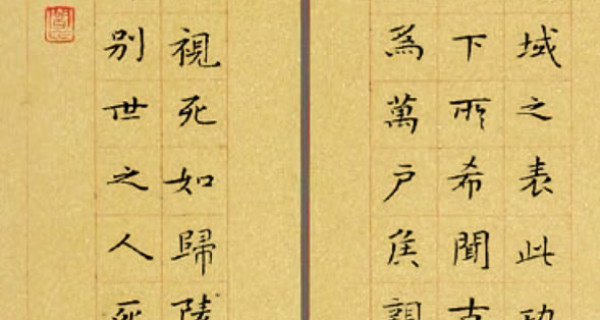 域之表此功
下所希聞古
為萬戶侯親
視死如歸陵
別世之人死